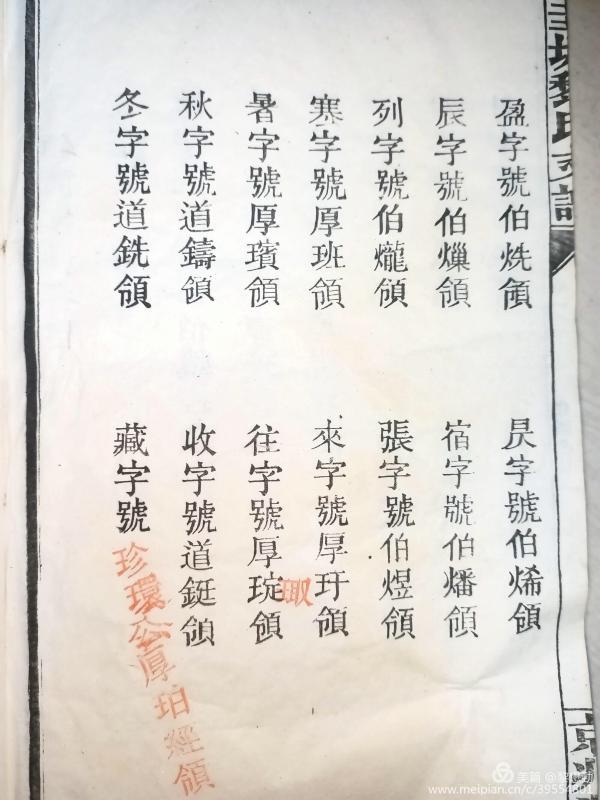 塘黎氏支譜
盈字號伯烍領
昃字號伯烯領
辰字號伯領
宿字號伯燔領
列字號伯爖領
張字號伯煜領
寒字號厚班領
來字號厚玗領
暑字號厚璸領
往字號厚琔領
秋字號道鑄領
收字號道鋌領
冬字號道銑領
藏字號珍環公厚珀經領
美篇 @黎
www.meipian.cn/c/39554801